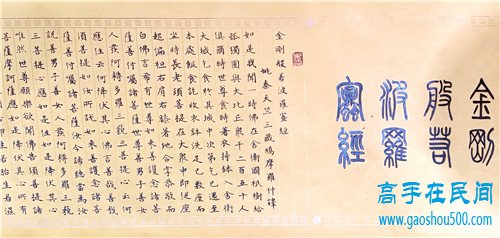 金剛
般若
波羅
蜜經
金剛般若波羅蜜經
姚秦天竺三藏鳩摩羅什譯
如是我聞一時佛在舍衛國祇樹給
孤獨園與大比丘眾千二百五十人
俱爾時世尊食時著衣持鉢入舍衛
大城乞食於其城中次第乞已還至
本處飯食訖收衣鉢洗足已敷座而
坐時長老須菩提在大眾中即從座
起偏袒右肩右膝著地合掌恭敬而
白佛言希有世尊如來善護念諸菩
薩善付囑諸菩薩世尊善男子善女
人發阿耨多羅三藐三菩提心云何
應住云何降伏其心佛言善哉善哉
須菩提如汝所說如來善護念諸菩
薩善付囑諸菩薩汝今諦聽當為汝
說善男子善女人發阿耨多羅三藐
三菩提心應如是住如是降伏其心
唯然世尊願樂欲聞佛告須菩提諸
菩薩摩訶薩應如是
高手在民间
www.gaoshou500.com